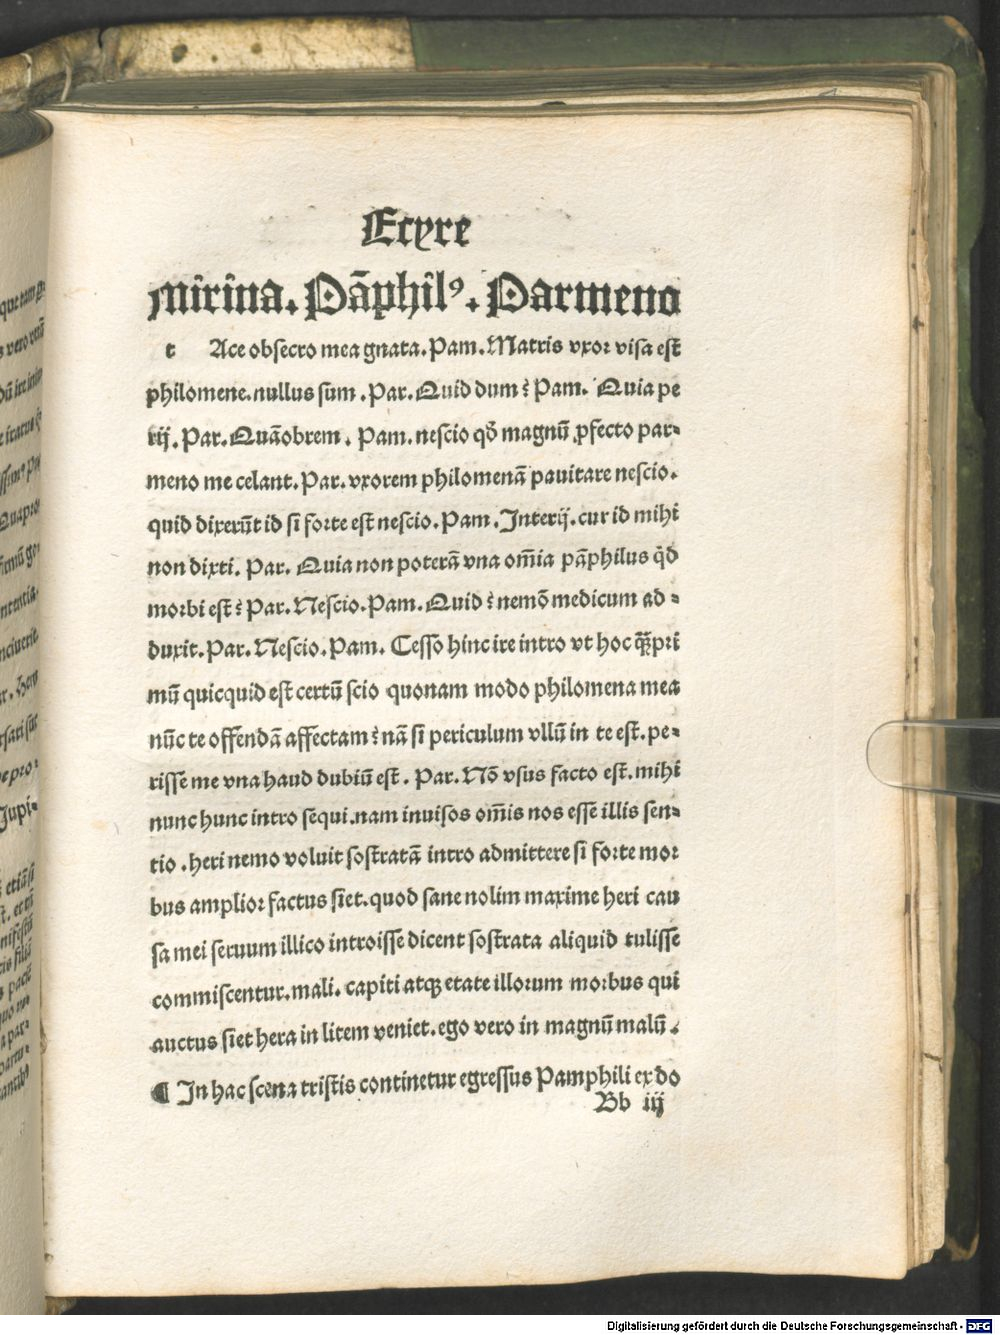 Ecyre
Mirina. Pāphilꝰ. Parmeno
t Ace obsecro mea gnata. Pam. Matris vxor visa est
philomene. nullus sum. Par. Quid dum? Pam. Quia pe
rij. Par. Quāobrem. Pam. nescio qđ magnū ꝓfecto par-
meno me celant. Par. vxorem philomenā pauitare nescio.
quid dixerūt id si forte est nescio. Pam. Interij. cur id mihi
non dixti. Par. Quia non poterā vna om̄ia pāphilus qđ
morbi est? Par. Nescio. Pam. Quid? nemō medicum ad-
duxit. Par. Nescio. Pam. Cesso hinc ire intro vt hoc q̄ꝫpri
mū quicquid est certū scio quonam modo philomena mea
nūc te offendā affectam? nā si periculum vllū in te est. pe-
risse me vna haud dubiū est. Par. Nō vsus facto est. mihi
nunc hunc intro sequi. nam inuisos om̄is nos esse illis sen-
tio. heri nemo voluit sostratā intro admittere si forte mor
bus amplior factus siet. quod sane nolim maxime heri cau
sa mei seruum illico introisse dicent sostrata aliquid tulisse
commiscentur. mali. capiti atqꝫ etate illorum morbus qui
auctus siet hera in litem veniet. ego vero in magnū malū.
¶ In hac scena tristis continetur egressus Pamphili ex do
Bb iij
Digitalisierung gefördert durch die Deutsche Forschungsgemeinschaft - DFG